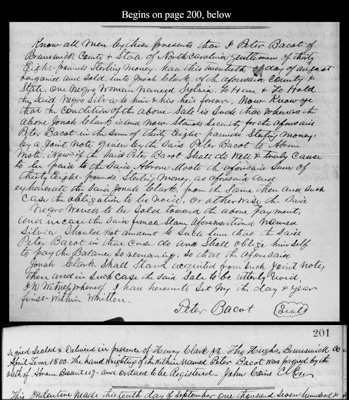 Begins on page 200, below
Know all Men by these presents that I Peter Bacot of
Brunswick County & State of North Carolina gentleman of thirty
Eight pounds Sterling Money Has this twentieth day of august
bargained and Sold, unto Jonah Clark, of the aforesaid County &
State, one Negro Woman named Sylvia To Him & To Hold
the Said Negro Silvia to him & his heirs forever, Now Know ye
that the Condition of the above Sale is Such that whereas the
above Jonah Clark is and now Stands Security for the aforesaid
Peter Bacot in the Sum of thirty Eight pounds Sterling Money,
by a Joint Note given by the Said Peter Bacot to
Note, Now if the Said Peter Bacot Shall do well & truly Cause
to be paid to the Said the aforesaid Sum of
thirty Eight pounds Sterling Money, as aforesaid and
exhonerate the Said Jonah Clark from the Same then and Such
Case this obligation to be Void, or otherwise the Said
Negro Wench to be Sold toward the above payment,
and incase the Said Named
Silvia Should not amount to Such Sum that the Said
Peter Bacot in that Case do and Shall oblige himself
to pay the Balance So remaining, So that the aforesaid
Jonah Clark Shall Stand acquited from Such Joint Note,
Then and in Such Case this Sale to be utterly Void,
In Witness whereof I have hereunto Set My the day & year
first within Written
Peter Bacot (Seal)
201
Signed Sealed & Delivered in presence of Henry Clark
1800. The hand writing of the within Named Peter Bacot was proved by the
oath of and ordered to be Registered. John
This Indenture Made this tenth day of September one thousand Seven hundred